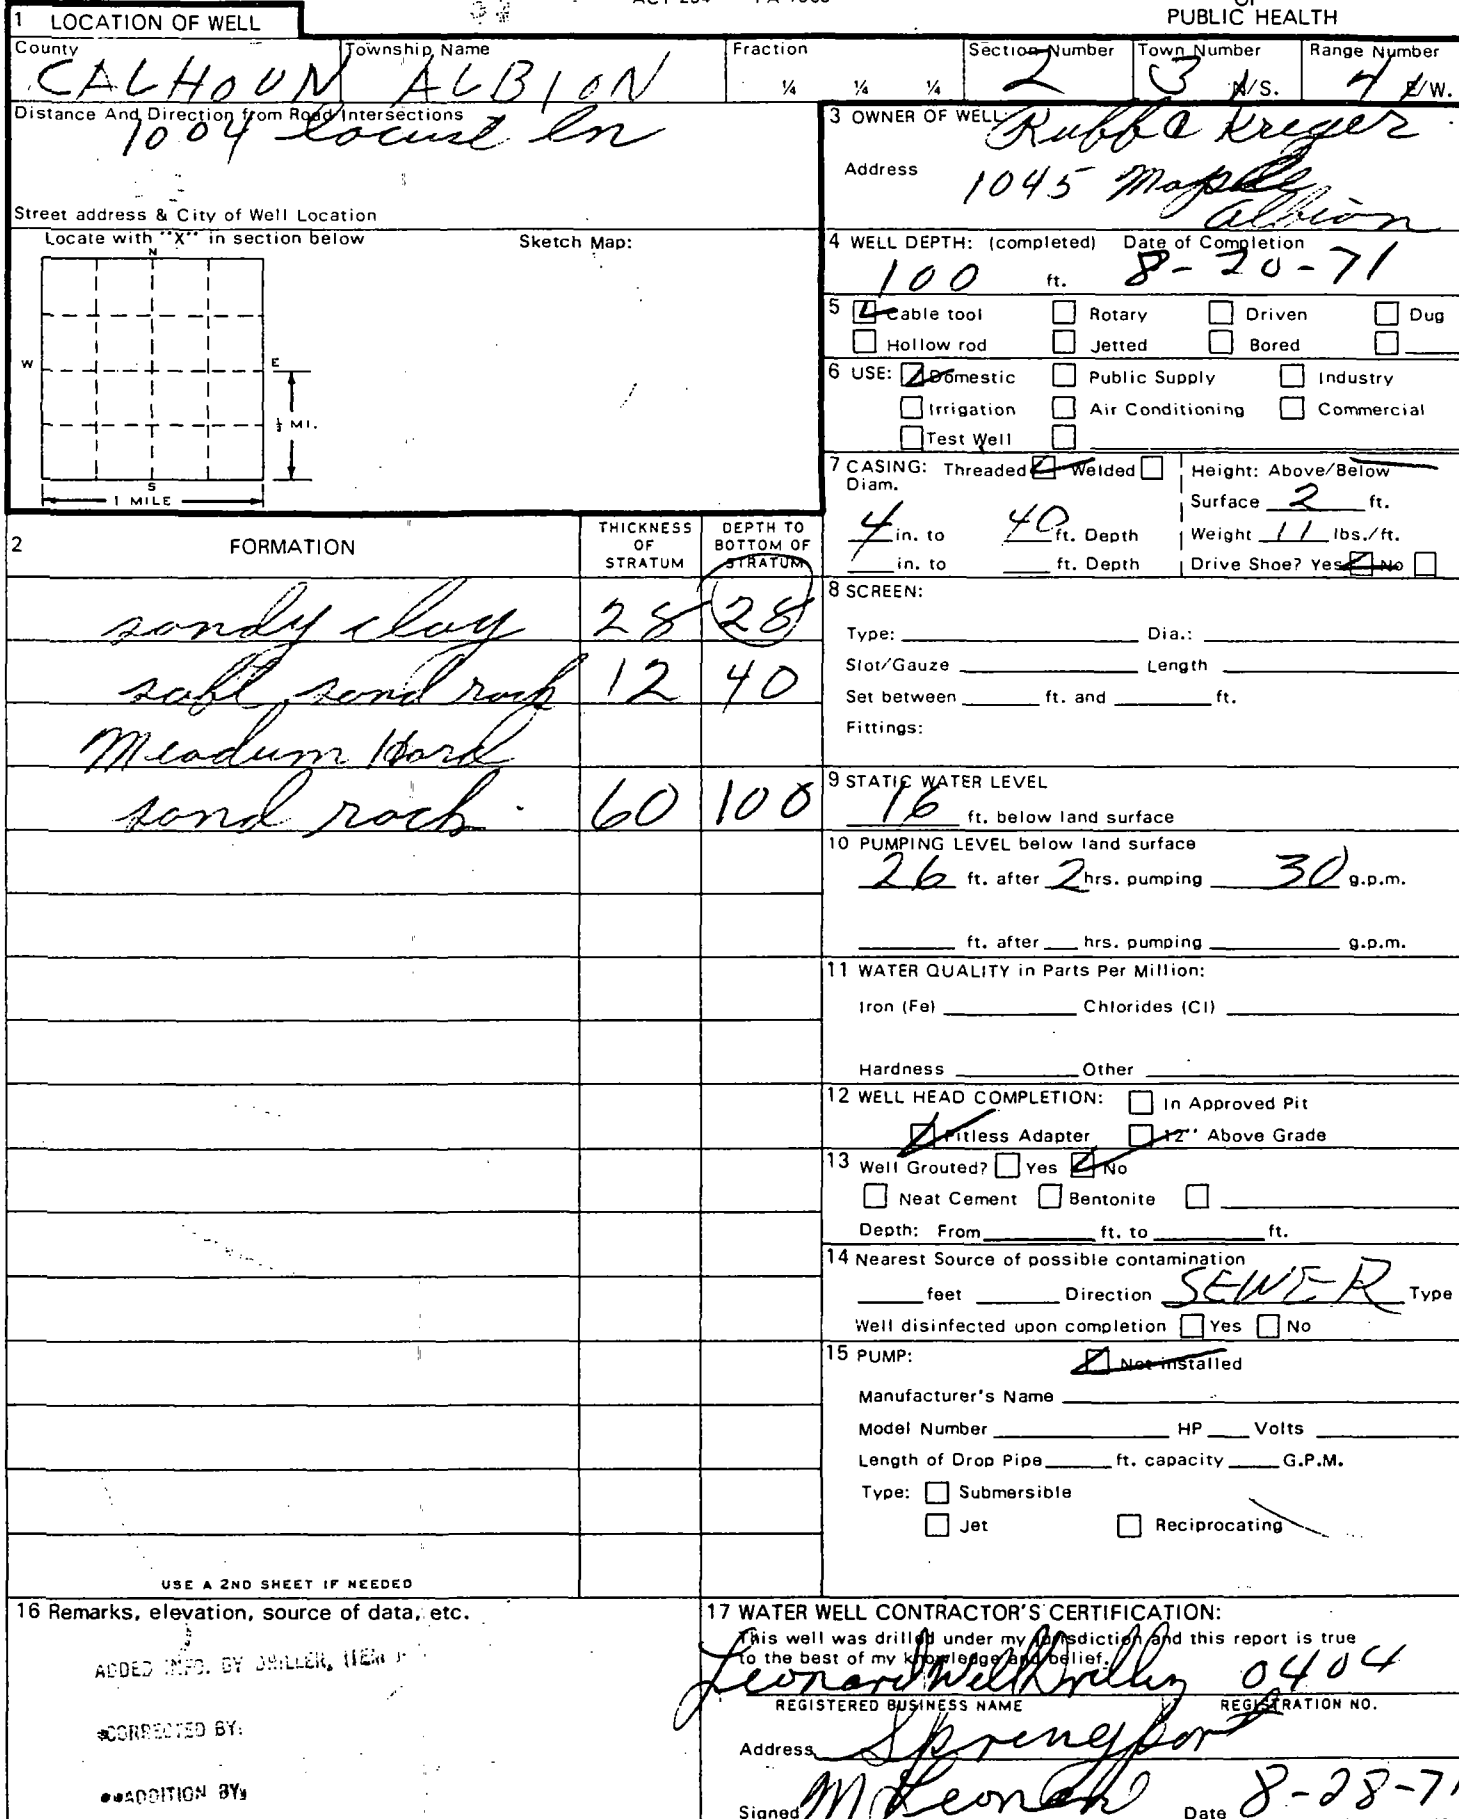 OF
PUBLIC HEALTH
1 LOCATION OF WELL
County Township Name Fraction Section Number Town Number Range Number
CALHOUN ALBION ¼ ¼ ¼ 2 3 N/S. 4 E/W.
Distance And Direction from Road Intersections
1004 Locust Ln
Street address & City of Well Location
Locate with "X" in section below Sketch Map:
N
W E
½ MI.
S
1 MILE
3 OWNER OF WELL: Kreger
Address 1045 Maple
Albion
4 WELL DEPTH: (completed) Date of Completion
100 ft. 8-20-71
5 Cable tool Rotary Driven Dug
Hollow rod Jetted Bored
6 USE: Domestic Public Supply Industry
Irrigation Air Conditioning Commercial
Test Well
7 CASING: Threaded Welded Height: Above/Below
Diam.
Surface 2 ft.
4 in. to 40 ft. Depth Weight 11 lbs./ft.
in. to ft. Depth Drive Shoe? Yes No
2 FORMATION THICKNESS OF STRATUM DEPTH TO BOTTOM OF STRATUM
sandy clay 28 28
soft sand rock 12 40
Meadum Hard
sand rock 60 100
8 SCREEN:
Type: Dia.:
Slot/Gauze Length
Set between ft. and ft.
Fittings:
9 STATIC WATER LEVEL
16 ft. below land surface
10 PUMPING LEVEL below land surface
26 ft. after 2 hrs. pumping 30 g.p.m.
ft. after hrs. pumping g.p.m.
11 WATER QUALITY in Parts Per Million:
Iron (Fe) Chlorides (Cl)
Hardness Other
12 WELL HEAD COMPLETION: In Approved Pit
Pitless Adapter 12" Above Grade
13 Well Grouted? Yes No
Neat Cement Bentonite
Depth: From ft. to ft.
14 Nearest Source of possible contamination
feet Direction SEWER Type
Well disinfected upon completion Yes No
15 PUMP: Not installed
Manufacturer's Name
Model Number HP Volts
Length of Drop Pipe ft. capacity G.P.M.
Type: Submersible
Jet Reciprocating
USE A 2ND SHEET IF NEEDED
16 Remarks, elevation, source of data, etc.
ADDED INFO. BY DRILLER, ITEM
*CORRECTED BY:
**ADDITION BY:
17 WATER WELL CONTRACTOR'S CERTIFICATION:
This well was drilled under my jurisdiction and this report is true
to the best of my knowledge and belief.
Leonard Well Drilling 0404
REGISTERED BUSINESS NAME REGISTRATION NO.
Address Springport
Signed M Leonard Date 8-28-71